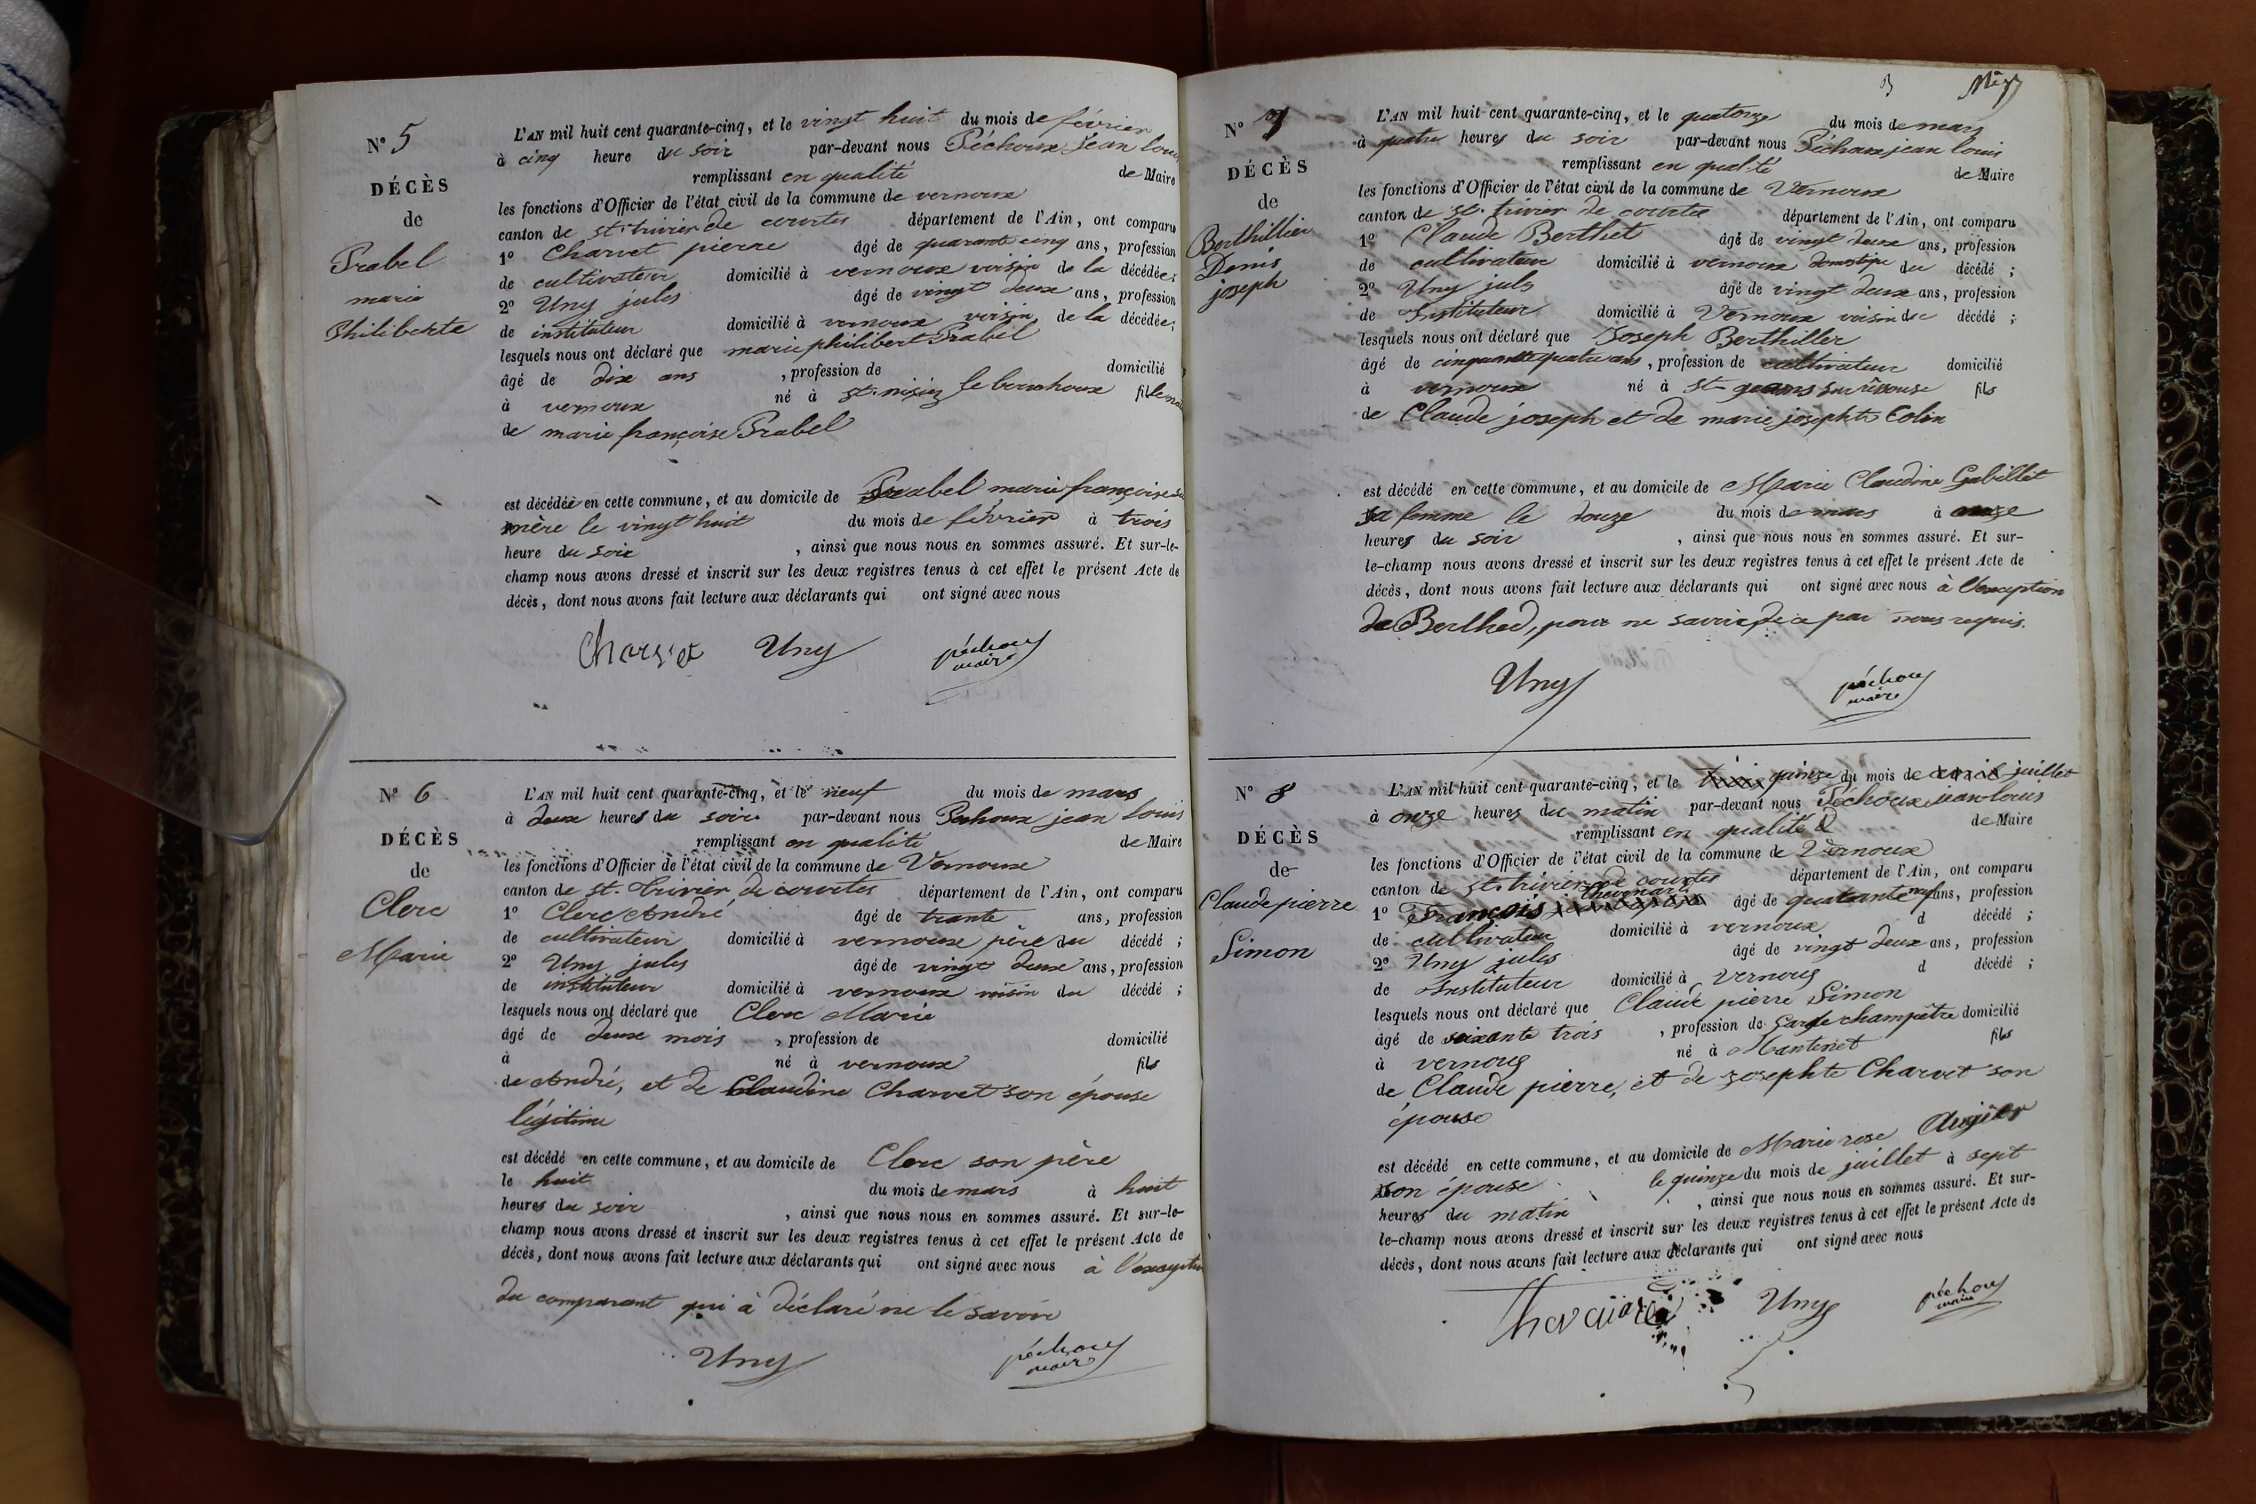 N° 5
DÉCÈS
de
Prabel
marie
Philiberte
L'AN mil huit cent quarante-cinq, et le vingt huit du mois de février
à cinq heure du soir par-devant nous Péchoux Jean louis
remplissant en qualité de Maire
les fonctions d'Officier de l'état civil de la commune de vernoux
canton de st. trivier de courtes département de l'Ain, ont comparu
1° Charvet pierre âgé de quarante cinq ans, profession
de cultivateur domicilié à vernoux voisin de la décédée;
2° Uny jules âgé de vingt deux ans, profession
de instituteur domicilié à vernoux voisin de la décédée;
lesquels nous ont déclaré que marie philibert Prabel
âgé de dix ans , profession de domicilié
à vernoux né à st. nizier le bouchoux fille
de marie françoise Prabel
est décédée en cette commune, et au domicile de Prabel marie françoise sa
mère le vingt huit du mois de février à trois
heure du soir , ainsi que nous nous en sommes assuré. Et sur-le-
champ nous avons dressé et inscrit sur les deux registres tenus à cet effet le présent Acte de
décès, dont nous avons fait lecture aux déclarants qui ont signé avec nous
Charvet Uny péchoux
maire
N° 6
DÉCÈS
de
Clerc
Marie
L'AN mil huit cent quarante-cinq, et le neuf du mois de mars
à deux heures du soir par-devant nous Pechoux jean louis
remplissant en qualité de Maire
les fonctions d'Officier de l'état civil de la commune de Vernoux
canton de st. trivier de courtes département de l'Ain, ont comparu
1° Clerc André âgé de trante ans, profession
de cultivateur domicilié à vernoux père du décédé;
2° Uny jules âgé de vingt deux ans, profession
de instituteur domicilié à vernoux voisin du décédé;
lesquels nous ont déclaré que Clerc Marie
âgé de deux mois , profession de domicilié
à né à vernoux fils
de André, et de Claudine Charvet son épouse
légitime
est décédé en cette commune, et au domicile de Clerc son père
le huit du mois de mars à huit
heures du soir , ainsi que nous nous en sommes assuré. Et sur-le-
champ nous avons dressé et inscrit sur les deux registres tenus à cet effet le présent Acte de
décès, dont nous avons fait lecture aux déclarants qui ont signé avec nous à l'exception
du comparant qui à déclaré ne le savoir
Uny péchoux
maire
3
N° 7
DÉCÈS
de
Berthillier
Denis
joseph
L'AN mil huit cent quarante-cinq, et le quatorze du mois de mars
à quatre heures du soir par-devant nous Péchoux jean louis
remplissant en qualité de Maire
les fonctions d'Officier de l'état civil de la commune de Vernoux
canton de st. trivier de courtes département de l'Ain, ont comparu
1° Claude Berthet âgé de vingt deux ans, profession
de cultivateur domicilié à vernoux domestique du décédé;
2° Uny jules âgé de vingt deux ans, profession
de Instituteur domicilié à Vernoux voisin du décédé;
lesquels nous ont déclaré que Joseph Berthiller
âgé de cinquante quatre ans, profession de cultivateur domicilié
à vernoux né à St- sur rèssouse fils
de Claude joseph et de marie josephte Colin
est décédé en cette commune, et au domicile de Marie Claudine Gabillet
sa femme le douze du mois de mars à onze
heures du soir , ainsi que nous nous en sommes assuré. Et sur-
le-champ nous avons dressé et inscrit sur les deux registres tenus à cet effet le présent Acte de
décès, dont nous avons fait lecture aux déclarants qui ont signé avec nous à l'exception
de Berthed, pour ne savoir de ce par nous requis.
Uny péchoux
maire
N° 8
DÉCÈS
de
Claude pierre
Simon
L'AN mil huit cent quarante-cinq, et le quinze du mois de juillet
à onze heures du matin par-devant nous Péchoux jean louis
remplissant en qualité d de Maire
les fonctions d'Officier de l'état civil de la commune de Vernoux
canton de st. trivier de courtes département de l'Ain, ont comparu
1° François Thevenard âgé de quarante neuf ans, profession
de cultivateur domicilié à vernoux d décédé;
2° Uny jules âgé de vingt deux ans, profession
de Instituteur domicilié à Vernoux d décédé;
lesquels nous ont déclaré que Claude pierre Simon
âgé de soixante trois , profession de garde champêtre domicilié
à vernoux né à Mantenet fils
de Claude pierre, et de Josephte Charvet son
épouse
est décédé en cette commune, et au domicile de Marie rose Augier
son épouse le quinze du mois de juillet à sept
heures du matin , ainsi que nous nous en sommes assuré. Et sur-
le-champ nous avons dressé et inscrit sur les deux registres tenus à cet effet le présent Acte de
décès, dont nous avons fait lecture aux déclarants qui ont signé avec nous
Thevenard Uny péchoux
maire